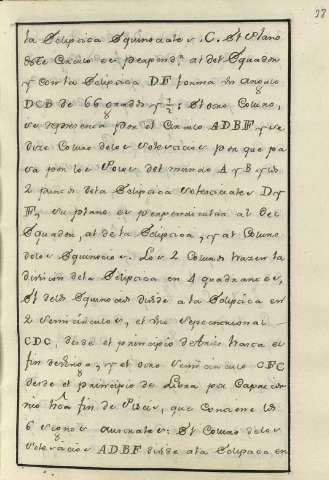 la Eclipcica Equinociales. C. El Plano
este Circulo es perpend.r al del Equador
y con la Eclipcica DF forma un angulo
DCB de 66 grados y ½; El otro Coluro,
se representa por el Circulo ADBF y se
dize Coluro de los Solsticios por que pa
sa por los Polos del mundo A y B y los
2 puntos dela Eclipcica Solsticiales D y
F, su plano es perpendicular al del
Equador, al de la Eclipcica, y al Coluro
delos Equinocios. Los 2 Coluros hazen la
division dela Eclipcica en 4 quadrantes,
El delos Equinocios divide a la Eclipcica en
2 semicirculos, el uno Septentrional
CDC, desde el principio de Aries hasta el
fin de Virgo, y el otro semicirculo CFC
desde el principio de Libra por Capricor
nio hta fin de Piscis, que contiene los
6 signos Australes: El Coluro delos
Solsticios ADBF divide a la Eclipcica en